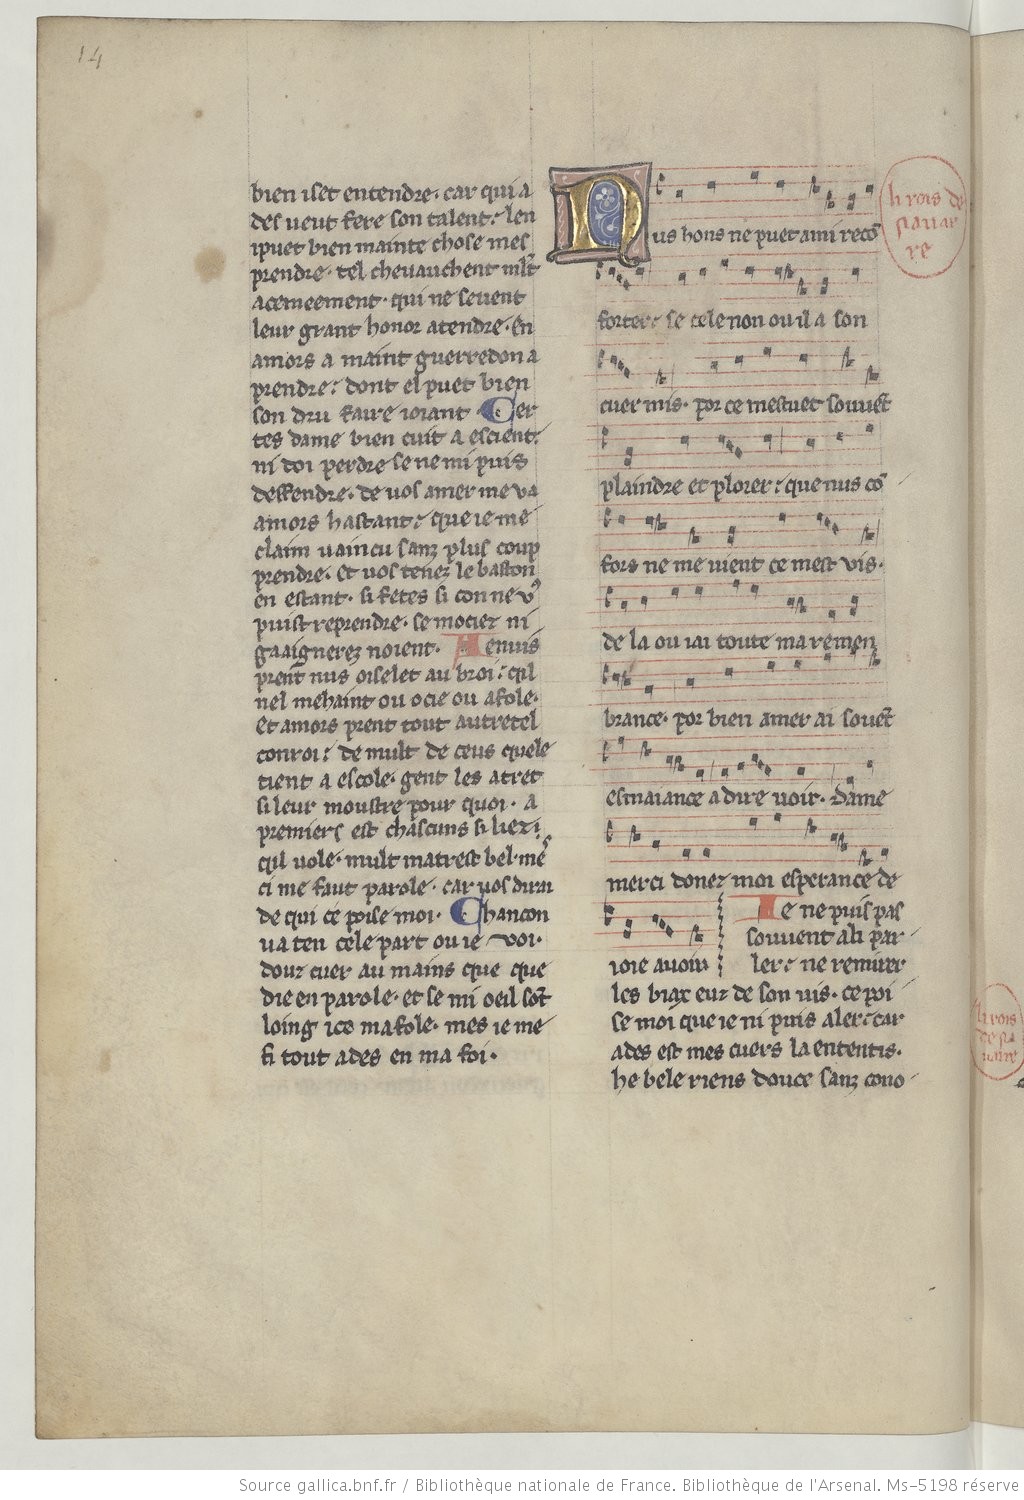 14
bien iset entendre. car qui a
des ueut fere son talent: len
ipuet bien mainte chose mes
prendre. tel cheuauchent ml̃t
acemeement. qui ne seuent
leur grant honor atendre. En
amors a maint guerredon a
prendre: dont el puet bien
son dru faire ioiant. Cer
tes dame bien cuit a escient:
ni doi perdre se ne mi puis
deffendre. de uos amer me va
amors hastant: que ie me
claim uaincu sanz plus coup
prendre. et uos tenez le baston
en estant. si fetes si con ne v9
puist reprendre. se mociez ni
gaaignerez noient. Aenuis
prent nus oiselet au broi: qil
nel mehaint ou ocie ou afole.
et amors prent tout autretel
conroi: de mult de ceus quele
tient a escole. gent les atret
si leur moustre pour quoi. a
premiers est chascuns si liez:
qil uole. mult matrest bel. me9
ci me faut parole. car uos dirai
de qui ce poise moi. Chancon
ua ten cele part ou ie voi.
douz cuer au mains que que
die en parole. et se mi oeil sõt
loing ice mafole. mes ie me
fi tout ades en ma foi.
Nus hons ne puet ami recõ
li rois de
nauar
re
forter: se cele non ou il a son
cuer mis. por ce mestuet souuẽt
plaindre et plorer: que nus cõ
fors ne me uient ce mest vis.
de la ou iai toute ma remen
brance. por bien amer ai souẽt
esmaiance a dire uoir. dame
merci donez moi esperance de
ioie auoir
Ie ne puis pas
souuent a li par
ler: ne remirer
les biax euz de son uis. ce poi
se moi que ie ni puis aler: car
ades est mes cuers la ententis.
he bele riens douce sanz cono
li rois
de na
uarre
Source gallica.bnf.fr / Bibliothèque nationale de France. Bibliothèque de l'Arsenal. Ms-5198 réserve